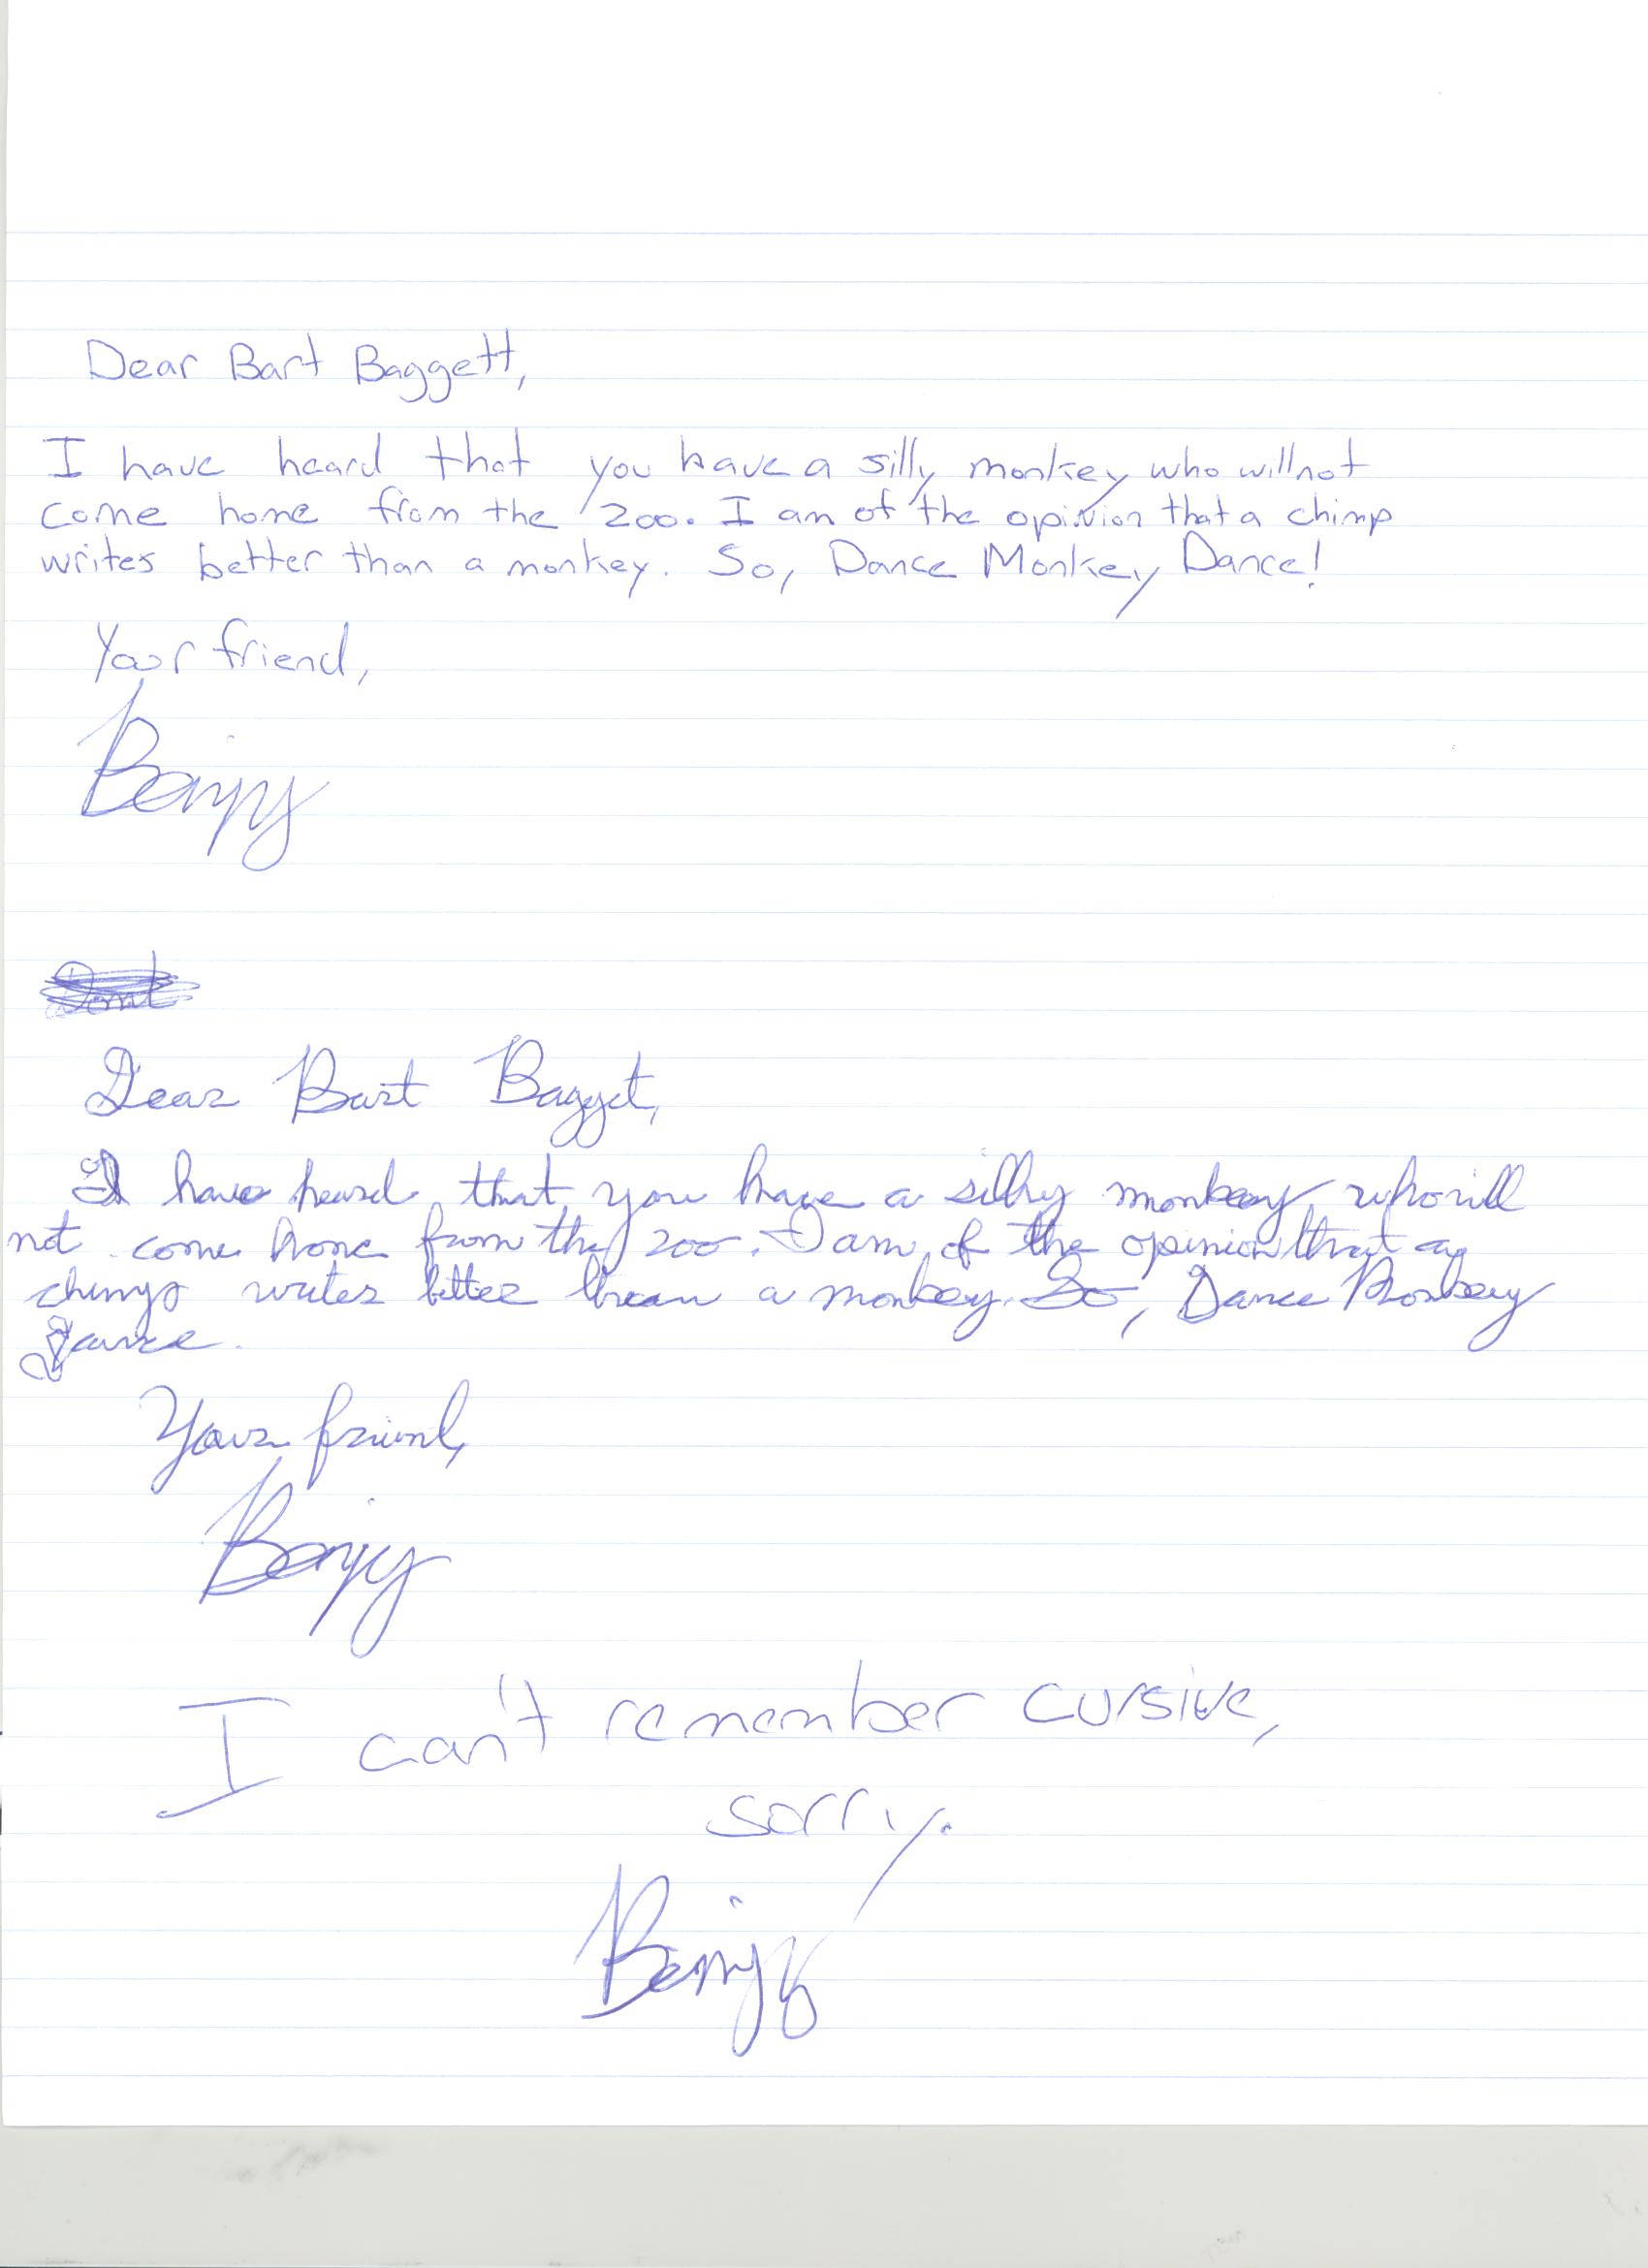 Dear Bart Baggett,
I have heard that you have a silly monkey who will not
come home from the zoo. I am of the opinion that a chimp
writes better than a monkey. So, Dance Monkey Dance!
Your friend,
Benjy
Dear Bart Bagget,
I have heard that you have a silly monkey who will
not come home from the zoo. I am of the opinion that a
chimp writes better than a monkey. So, Dance Monkey
Dance.
Your friend,
Benjy
I can't remember cursive,
sorry.
Benjy